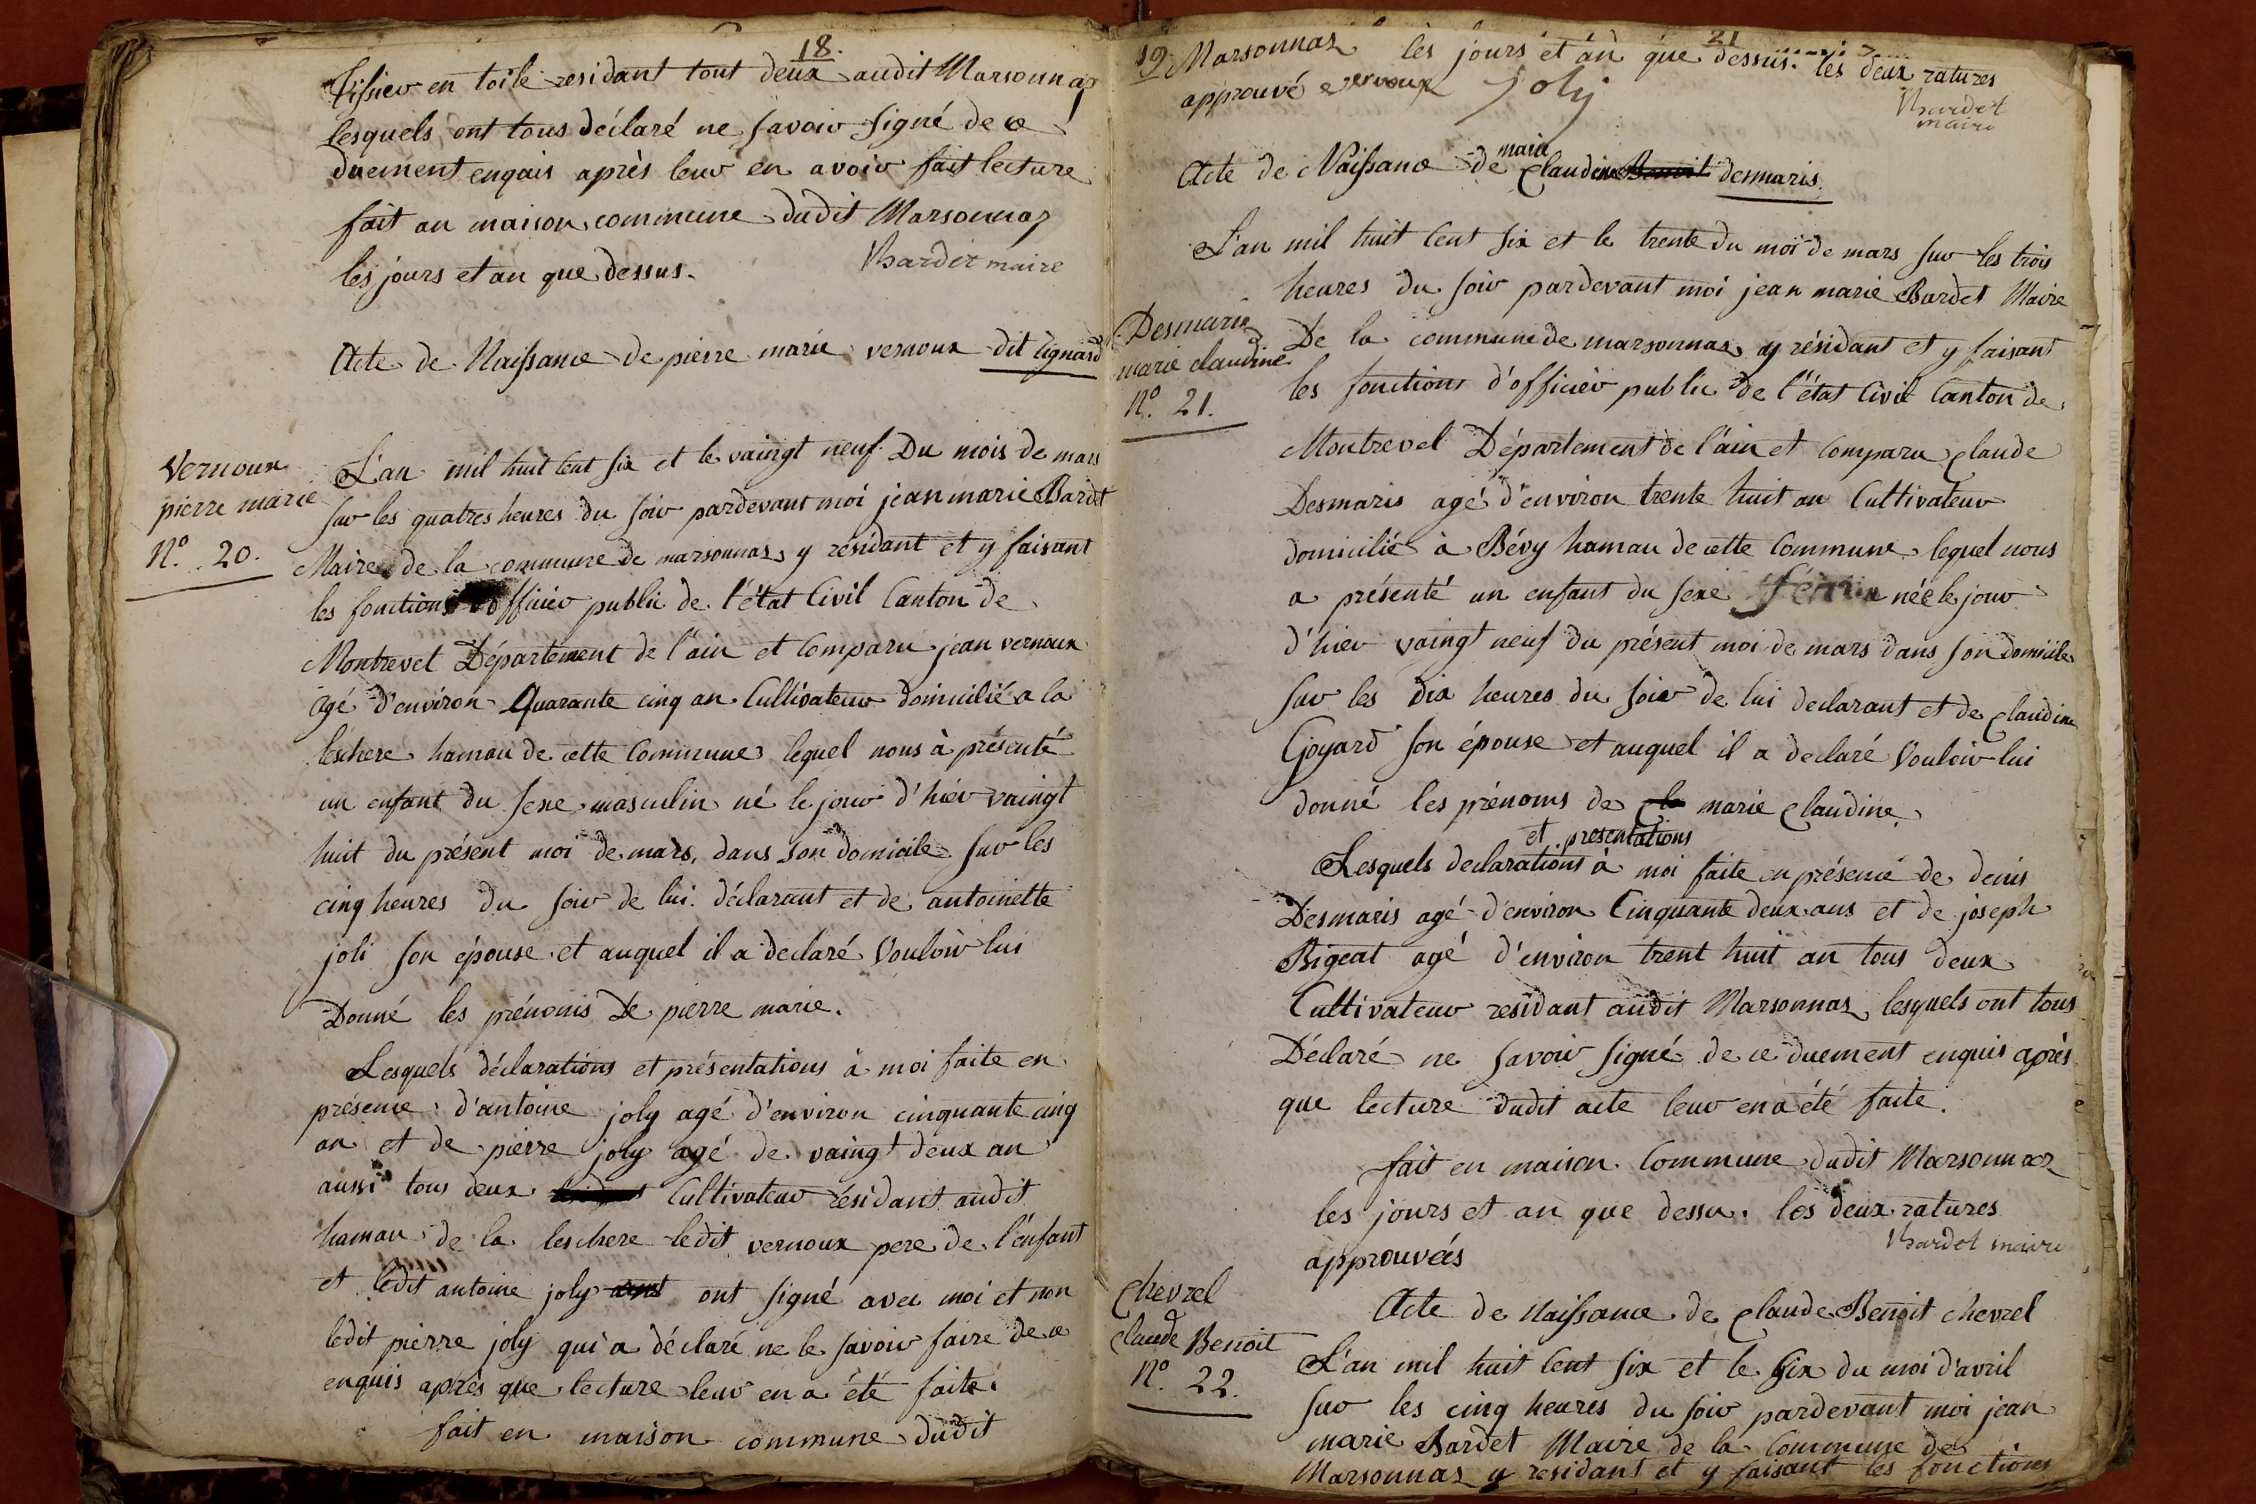 18.
Tissier en toile residant tout deux audit Marsonnas
lesquels ont tous déclaré ne savoir signé de ce
duement enquis après leur en avoir fait lecture
fait au maison commune dudit Marsonnas
les jours et an que dessus.
Bardet maire
Acte de Naissance de pierre marie vernoux dit lignard
Vernoux
pierre marie
N.º 20.
L'an mil huit cent six et le vaingt neuf Du mois de mars
sur les quatres heures du soir pardevant moi jean marie Bardet
Maire de la commune de marsonnas y résidant et y faisant
les fonctions officier public de l'état Civil Canton de
Montrevel Département de l'ain et comparu jean vernoux
agé d'environ Quarante cinq an Cultivateur domicilié a la
leschere hamau de cette Commune lequel nous à présenté
un enfant du sexe masculin né le jour d'hier vaingt
huit du présent moi de mars, dans son domicile sur les
cinq heures du soir de lui déclarant et de antoinette
joli son épouse et auquel il a declaré Vouloir lui
Donné les prénoms De pierre marie.
Lesquels déclarations et présentations à moi faite en
présence d'antoine joly agé d'environ cinquante cinq
an et de pierre joly agé de vaingt deux an
aussi tous deux Cultivateur résidant audit
hamau de la leschere ledit vernoux pere de l'enfant
et ledit antoine joly ont signé avec moi et non
ledit pierre joly qui a déclaré ne le savoir faire de ce
enquis après que lecture leur en a été faite.
fait en maison commune dudit
19.
21
Marsonnas les jours et an que dessus. les deux ratures
approuvé vernoux Joly
Bardet
maire
Acte de Naissance de marie Claudine Benoit desmaris
Desmaris
marie claudine
N.º 21.
L'an mil huit cent six et le trente du moi de mars sur les trois
heures du soir pardevant moi jean marie Bardet Maire
De la commune de marsonnas y résidant et y faisant
les fonctions d'officier public de l'état Civil Canton de
Montrevel Département de l'ain et comparu Claude
Desmaris agé d'environ trente huit an Cultivateur
domicilié à Bévy hamau de cette Commune lequel nous
a présenté un enfant du sexe née le jour
d'hier vaingt neuf du présent moi de mars dans son domicile
sur les dix heures du soir de lui declarant et de Claudine
Goyard son épouse et auquel il a declaré Vouloir lui
donné les prénoms de cla marie Claudine
et presentations
Lesquels declarations à moi faite en présence de denis
Desmaris agé d'environ Cinquante deux ans et de joseph
Bigeat agé d'environ trent huit an tous deux
Cultivateur residant audit Marsonnas lesquels ont tous
Déclaré ne savoir signé de ce duement enquis après
que lecture dudit acte leur en a été faite.
fait en maison Commune dudit Marsonnas
les jours et an que dessu. les deux ratures
approuveés
Bardet maire
Acte de Naissance de Claude Benoit chevrel
Chevrel
claude Benoit
N.º 22.
L'an mil huit cent six et le six du moi d'avril
sur les cinq heures du soir pardevant moi jean
marie Bardet Maire de la Commune de
Marsonnas y residant et y faisant les fonctions